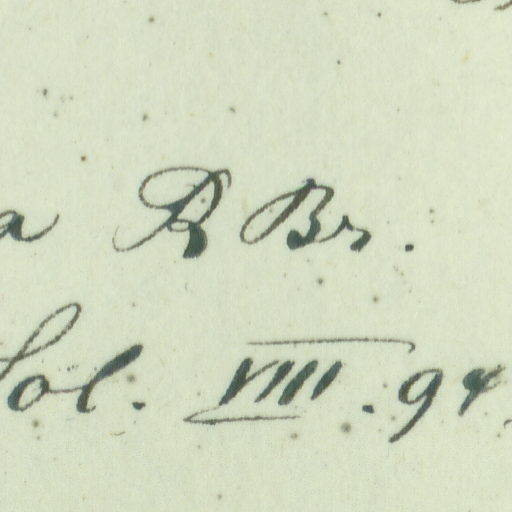 a R Br.
Söl. VIII. 94